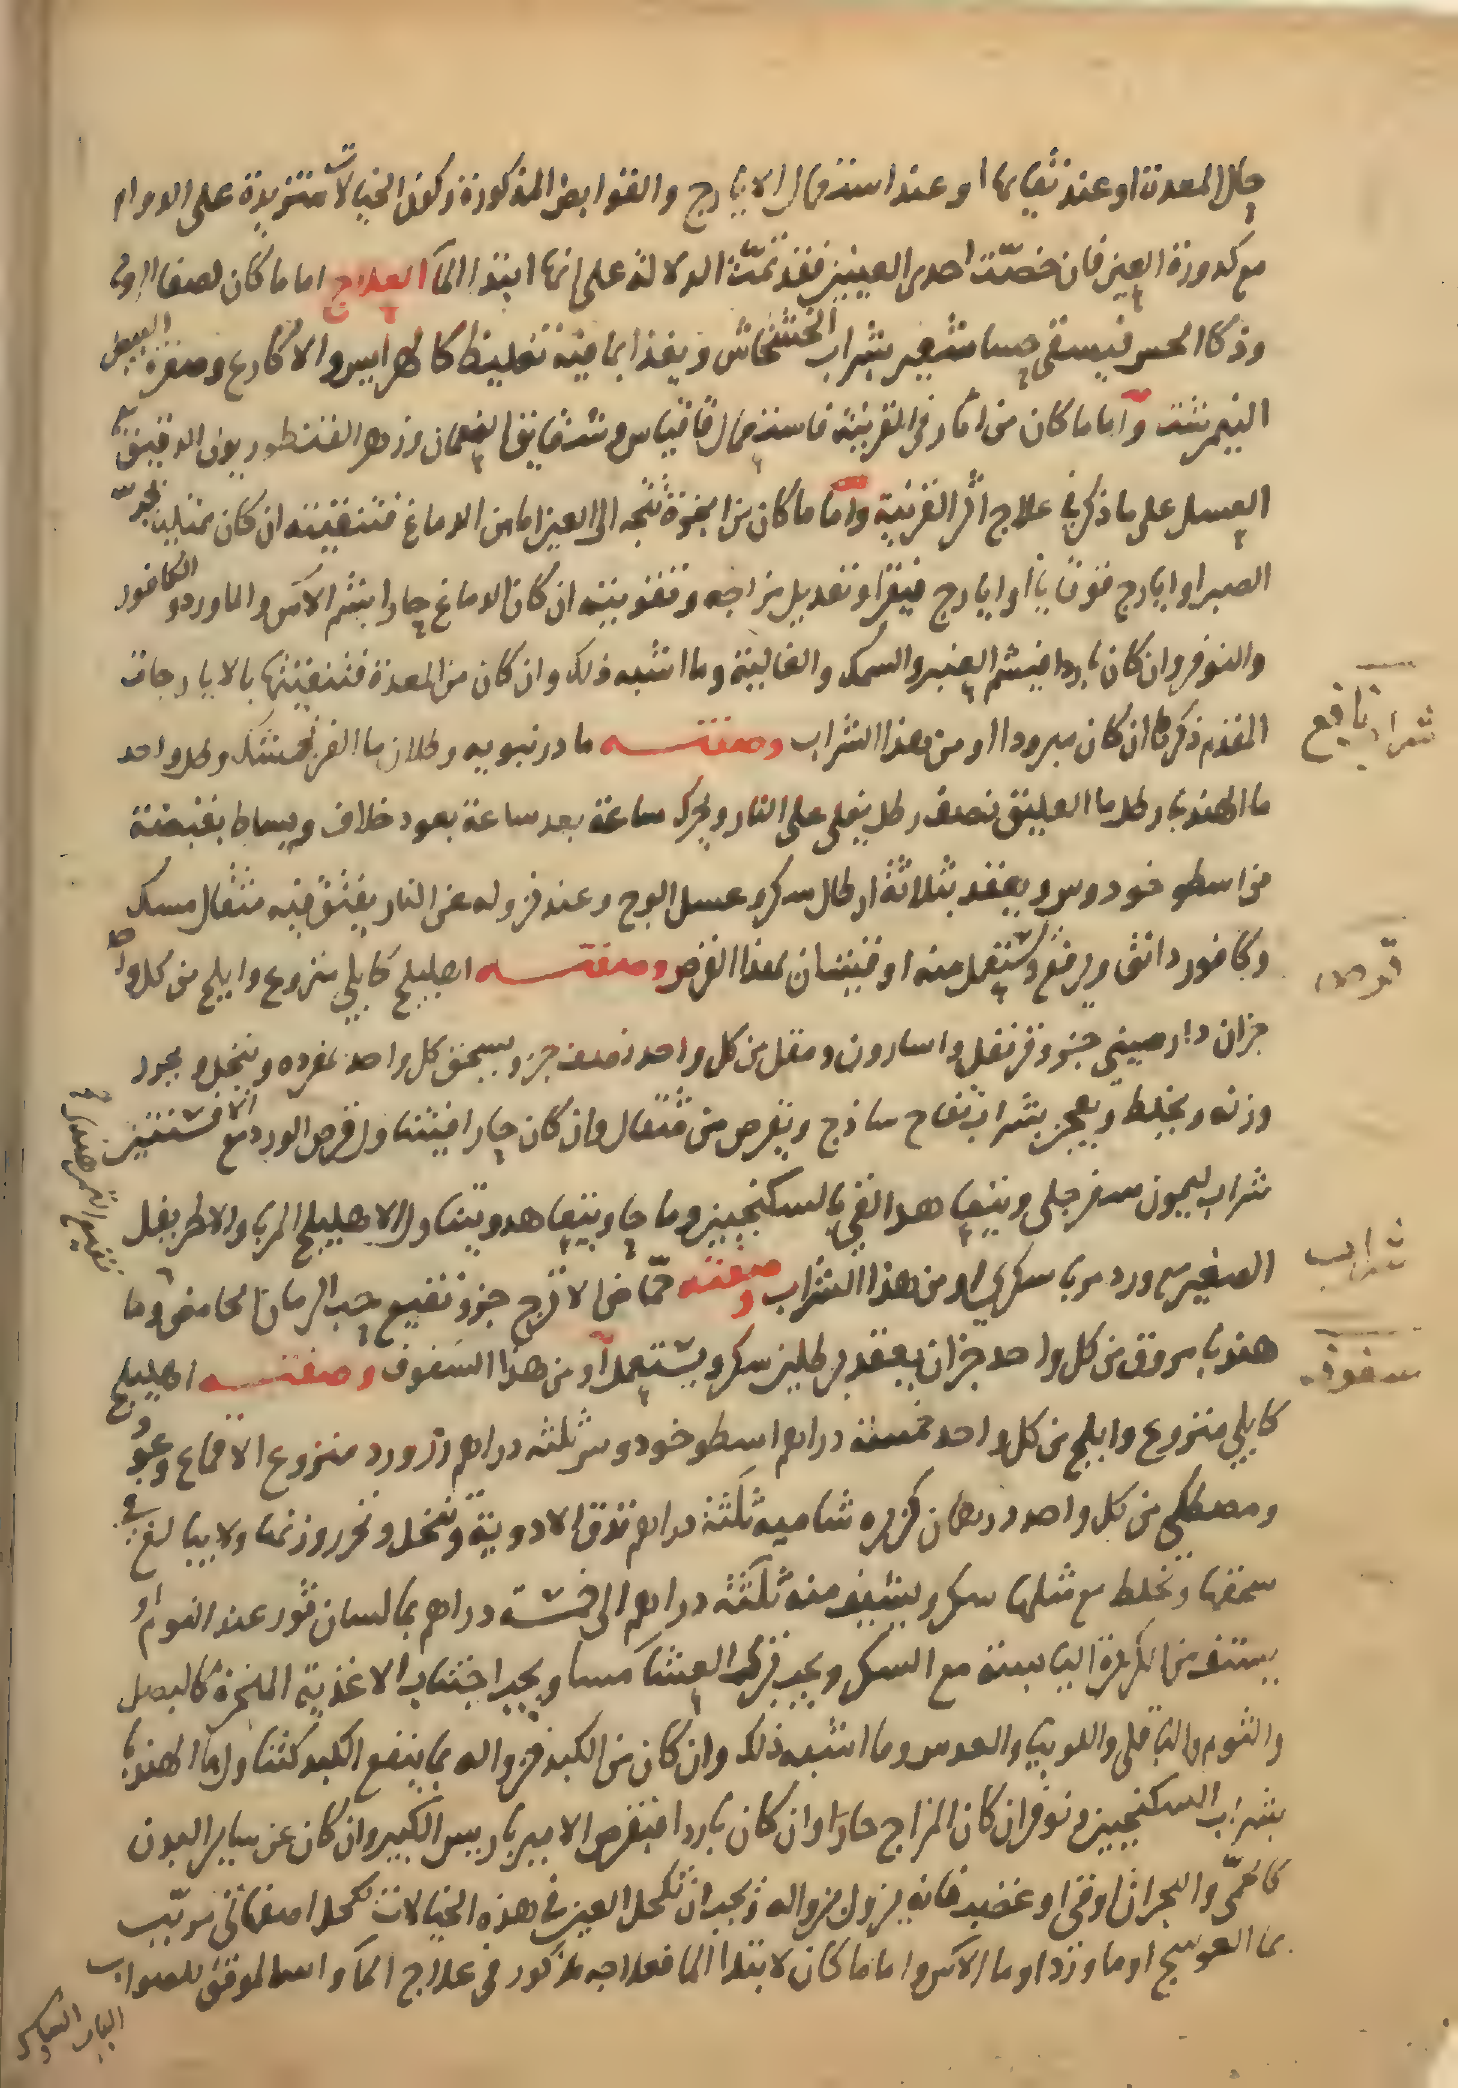 حال المعدة او عند نقايها او عند استعمال الايارج والقوابض المذكورة وكون الخيالات متزيدة على الدوام
مع كدورة العين فان خصّت احدى العينين فقد تمّت الدلالة على انها ابتدا الماء العلاج اما ما كان لصفا الروح
وذكا الحس فيسقى حسا شعير بشراب الخشخاش ويغذا بما فيه تغليظ كالهرايس والاكارع وصفرة البيض
النيمرشت واما ما كان من اثار في القرنية فاستعمال قاقياس وشقايق النعمان وزهر القنطوريون الدقيق
العسل على ما ذكر في علاج اثر القرنية واما ما كان من ابخرة تتجه الى العين اما من الدماغ فتنقيته ان كان ممتليا بحبّ
الصبر او ايارج فوقايا او ايارج فيقرا وتعديل مزاجه وتقويته ان كان الدماغ حارا بشم الآس والماورد والكافور
والنوفر وان كان باردا فيشم العنبر والمسك والغالية وما اشبه ذلك وان كان من المعدة فتنقيتها بالايارجات
المقدم ذكرها ان كان مبرودا او من هذا الشراب وصفتــه ما درنبويه رطلان ما الفرنجمشك رطل واحد
ما الهندبا رطل ما العليق نصف رطل يغلى على النار ويحرك ساعة بعد ساعة بعود خلاف ويساط بقبضة
من اسطوخودوس ويعقد بثلاثة ارطال سكر وعسل الوج وعند نزوله عن النار يفتق فيه مثقال مسك
وكافور دانق ويرفع ويستعمل منه اوقيتان بهذا القرص وصفتــه اهليلج كابلي منزوع وابلج من كل واحد
جزان دارصيني جزو قرنفل واسارون ومقل من كل واحد نصف جزو يسحق كل واحد بمفرده وينخل ويجود
وزنه ويخلط ويعجن بشراب تفاح ساذج ويقرص من مثقال وان كان حارا فيتناول قرص الورد مع الافسنتين
شراب ليمون سفرجلى ويتعاهد القي بالسكنجبين وما حار ويتعاهد ويتناول الاهليلج المربا والاطريفل
الصغير مع ورد مربا سكري او من هذا الشراب وصفته حمّاض الاترج جزو نقيع حب الرمان الحامض وما
هندبا مروق من كل واحد جزان يعقد برطلين سكر ويستعمل او من هذا السفوف وصفتــه اهليلج
كابلي منزوع وابلج من كل واحد خمسة دراهم اسطوخودوس ثلثه دراهم زرورد منزوع الاقماع وعود
ومصطكى من كل واحد درهمان كزبره شاميه ثلثة دراهم تدق الادوية وتنخل وتحرر وزنها ولا يبالغ في
سحقها وتخلط مع مثلها سكر ويستف منه ثلثة دراهم الى خمسة دراهم بما لسان ثور عند النوم او
يستف من الكزبرة اليابسة مع السكر ويجب ترك العشا مسا ويجب اجتناب الاغذية المبخرة كالبصل
والثوم والباقلى واللوبيا والعدس وما اشبه ذلك وان كان من الكبد فزواله بما ينفع الكبد كتناول ما الهندبا
بشراب السكنجبين ونوفر ان كان المزاج حارا وان كان باردا فبقرص الاميرباريس الكبير وان كان عن ساير البدن
كالحمّى والبحران او قى او غضب فانه يزول بزواله ويجب ان تكحل العين في هذه الخيالات بكحل اصفهاني مربّب
بما العوسج او ما ورد او ما الآس واما ما كان لابتدا الما فعلاجه مذكور في علاج الماء والله الموفق للصواب
الباب
شراب نافع
قرص
شراب
سفوف